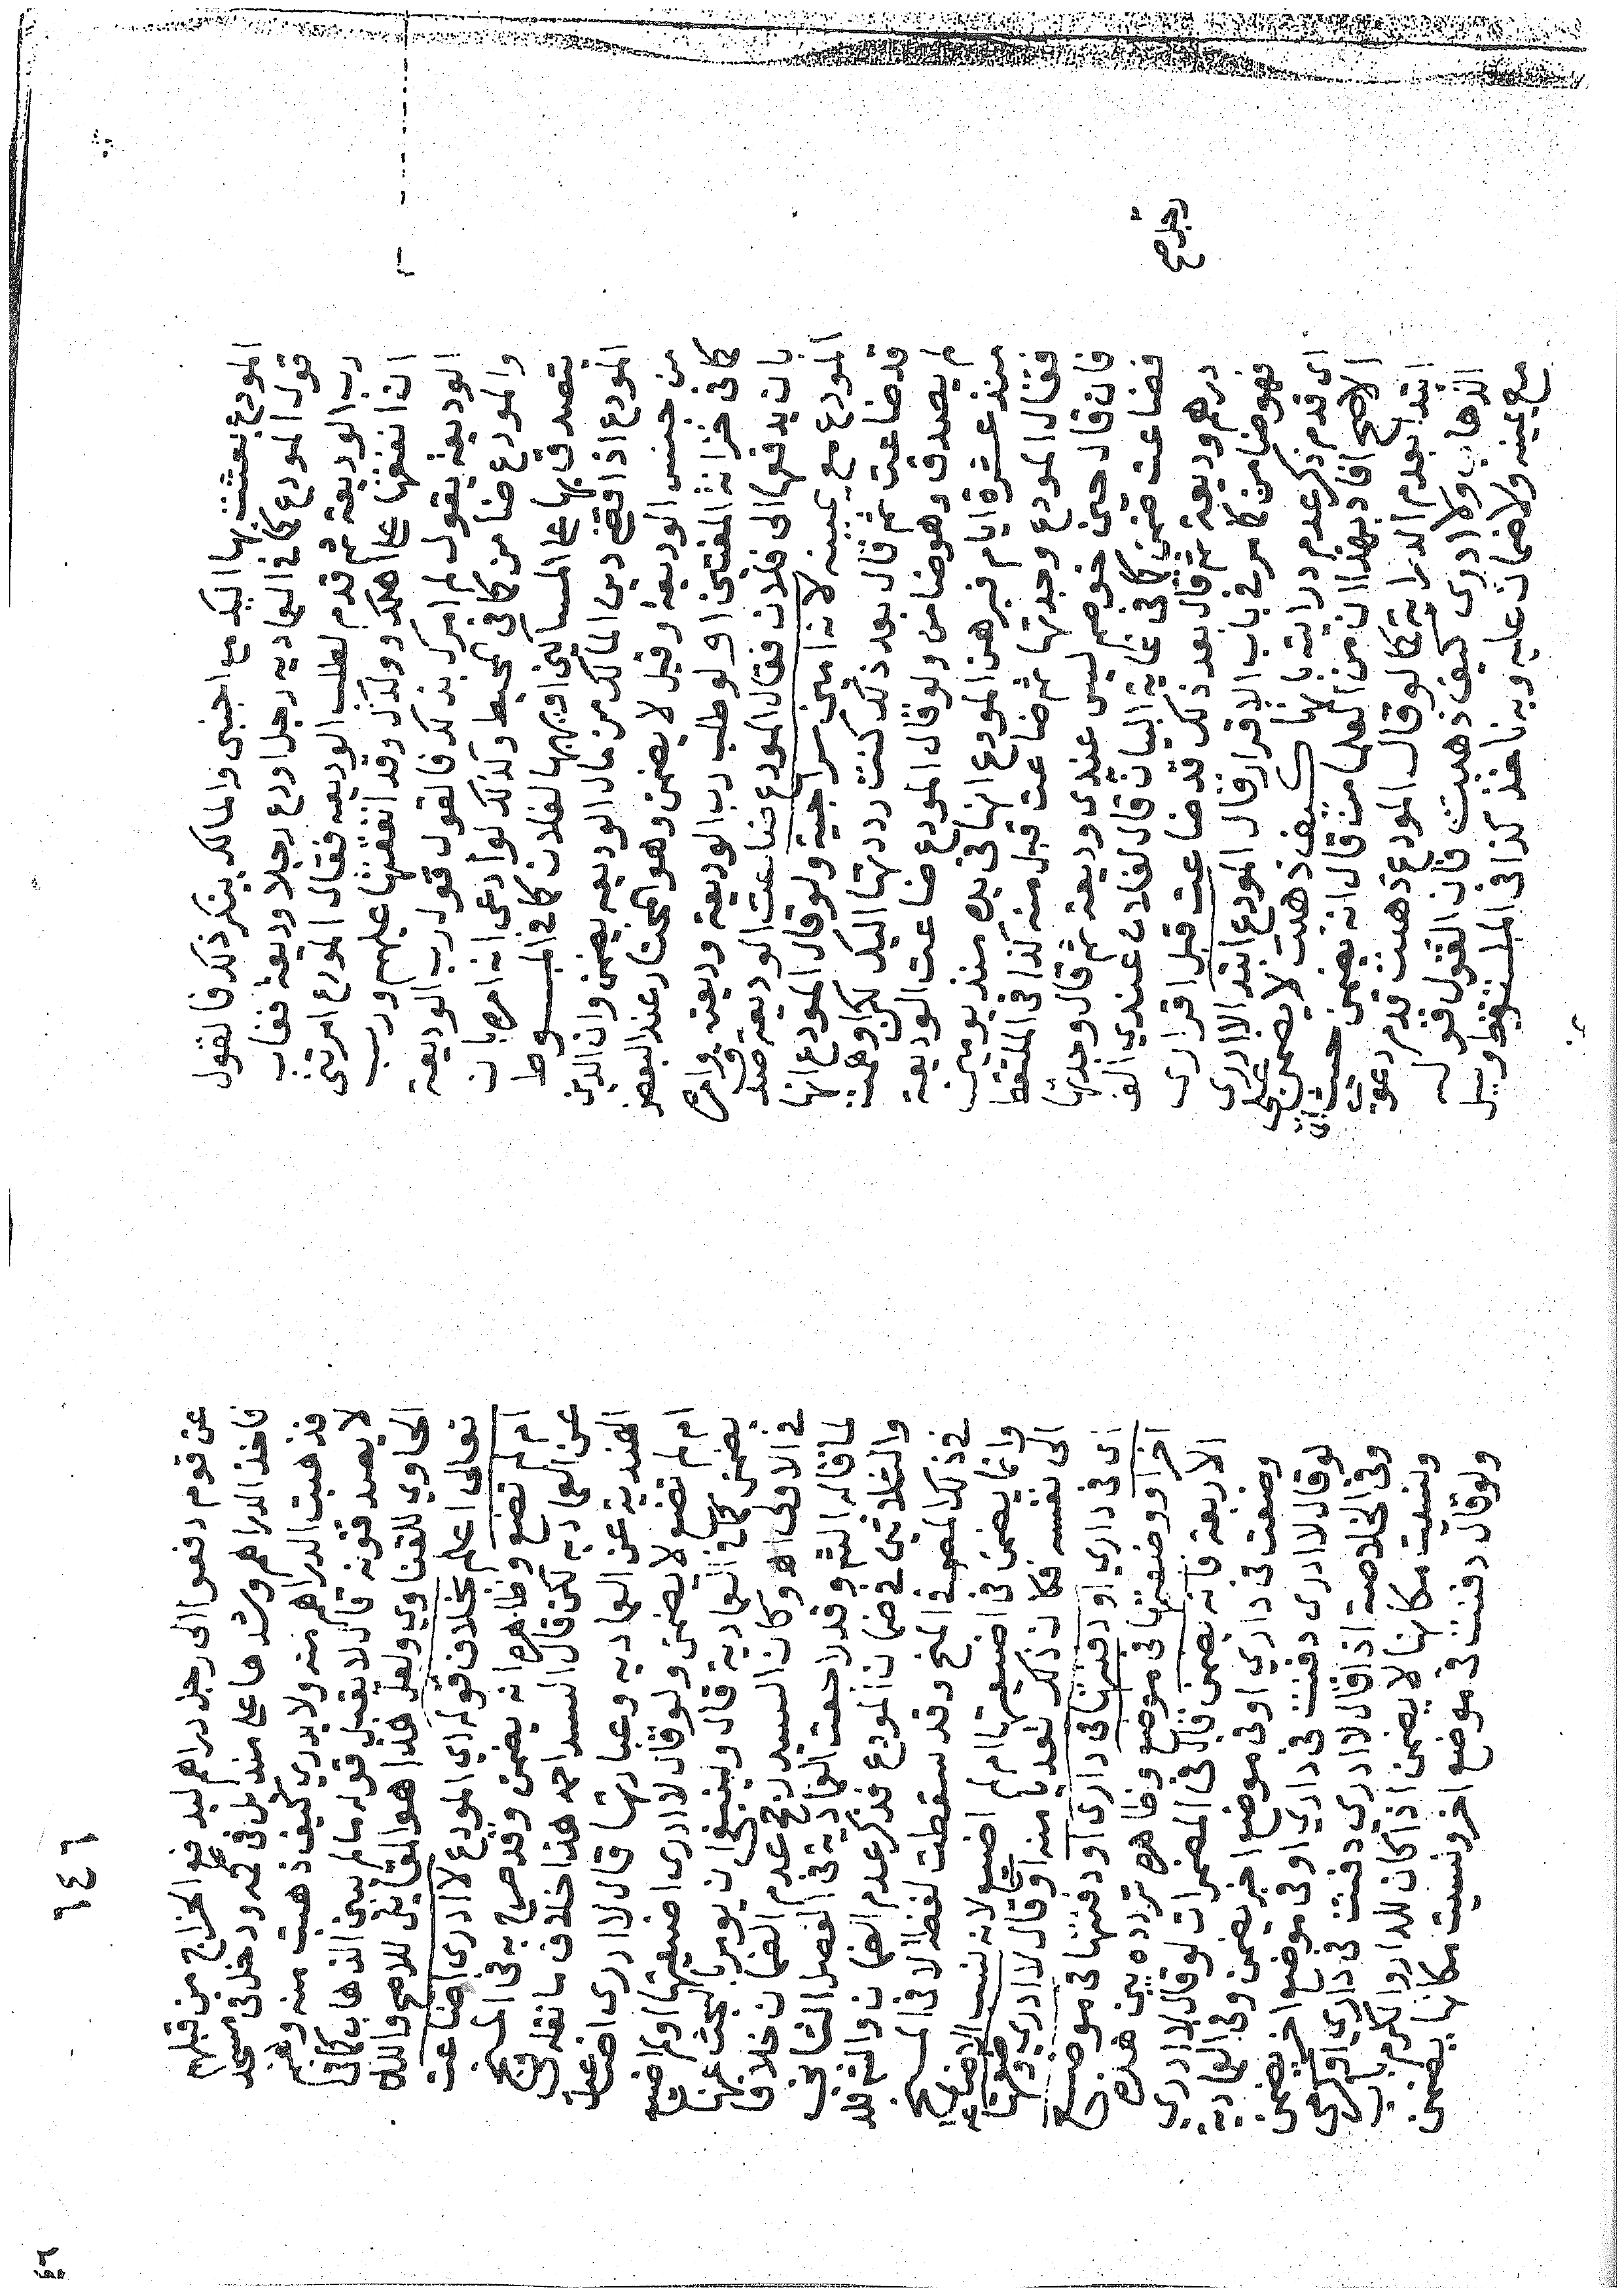 المودع بعثت بها اليك مع اجنبى والمالك ينكر ذلك فالقول
قول المودع كما فى العماديه رجل اودع رجلا وديعة فغاب
رب الوديعة ثم قدم لطلب الوديعه فقال المودع امرتنى
ان انفقها على اهلك وولدك وقد انفقتها عليهم ورب
الوديعة يقول لم امرك بذلك فالقول قول رب الوديعة
والمودع ضامن كما فى المحيط وكذلك لو ادعى انه امره بان
يتصدق بها على المساكين او يهبها لفلان كما فى المبسوط
المودع اذا قضى دين المالك من مال الوديعه يضمن وان الدين
من جنس الوديعة وقيل لا يضمن وهو المختار عند البعض
كما فى خزانة المفتين ولو طلب رب الوديعة وديعته وامره
بان يدفعها الى فلان فقال المودع ضاعت الوديعة صدق
المودع مع يمينه لانه امين سراجية ولو قال المودع انها
قد ضاعت ثم قال بعد ذلك كنت رددتها اليك لكن اوهمت
لم يصدق وهو ضامن ولو قال المودع ضاعت الوديعة
منذ عشرة ايام فبرهن المودع انها فى يده منذ يومين
فقال المودع وجدتها ثم ضاعت قبل منه كذا فى الملتقط
فان قال حين خوصم ليس عندى وديعة ثم قال وجدتها
فضاعت ضمن كما فى غاية البيان قال لفلان عندي الف
درهم وديعة ثم قال بعد ذلك قد ضاعت قبل اقرارى
فهو ضامن كما مر فى باب الاقرار قال المودع ابتدا لا ادرى
اى قدم ذكر عدم درايته بانها كيف ذهبت لا يضمن على
الاصح افاد بهذا ان من العلما من قال انه يضمن حيث
ابتدا بعدم الدراية كما لو قال المودع ذهبت قدم دعوى
الذهاب ولا ادرى كيف ذهبت فان القول قوله
مع يمينه ولا ضمان عليه وبه ناخذ كذا فى الملتقط وسيل
عن قوم دفعوا الى رجل دراهم ليدفع الخراج من قبلهم
فاخذ الدراهم وشدها على منديل فى كمه ودخل فى مسجد
فذهبت الدراهم منه ولا يدرى كيف ذهبت منه وهم
لا يصدقونه قال لا يقبل قوله مالم يبين الذهاب كما فى
الحاوي للفتاوي ولعل هذا هو المقابل للاصح والله
تعالى اعلم بخلاف قوله اي المودع لا ادرى اضاعت
ام لم تضع وظاهره انه يضمن وقد صرح به فى المنح
عن العماديه لكن قال السيد احمد هذا خلاف ما نقله فى
الهنديه عن العماديه وعبارتها قال لا ادرى اضاعت
ام لم تضع لا يضمن ولو قال لا ادرى اضيعتها او لم اضيع
يضمن كما فى العمادية قال وينبغى ان يومر بالبحث عنها
فى الاولى اه وكان السيد رجح عدم الضمان خلافا
لما قاله الشم وقد راجعت العمادية فى الفصل الثانى
والثلاثين فى ضمان المودع فذكر عدم الضمان والشم قلد
فى ذلك المص فى المنح وقد سقطت لفظة لا فى المنح
وانما يضمن فى اضيعتها ام لم اضيع لانه نسب الاضاعة
الى نفسه فكان ذلك تعديا منه او قال لا ادري وضعتها
اى فى داري او دفنتها فى دارى او دفنتها فى موضع
اخر او وضعتها فى موضع وظاهره تردده بين هذه
الاربعة فانه يضمن قال فى المضمرات لو قال لا ادري
وضعت فى داري او فى موضع اخر يضمن وفى العماديه
لو قال لا ادرى دفنت فى داري او فى موضع اخر يضمن
وفى الخلاصة اذا قال لا ادرى دفنت فى داري او كرمي
ونسيت مكانها لا يضمن اذا كان للدار والكرم باب
ولو قال دفنت فى موضع اخر ونسيت مكانها يضمن
١٤٦